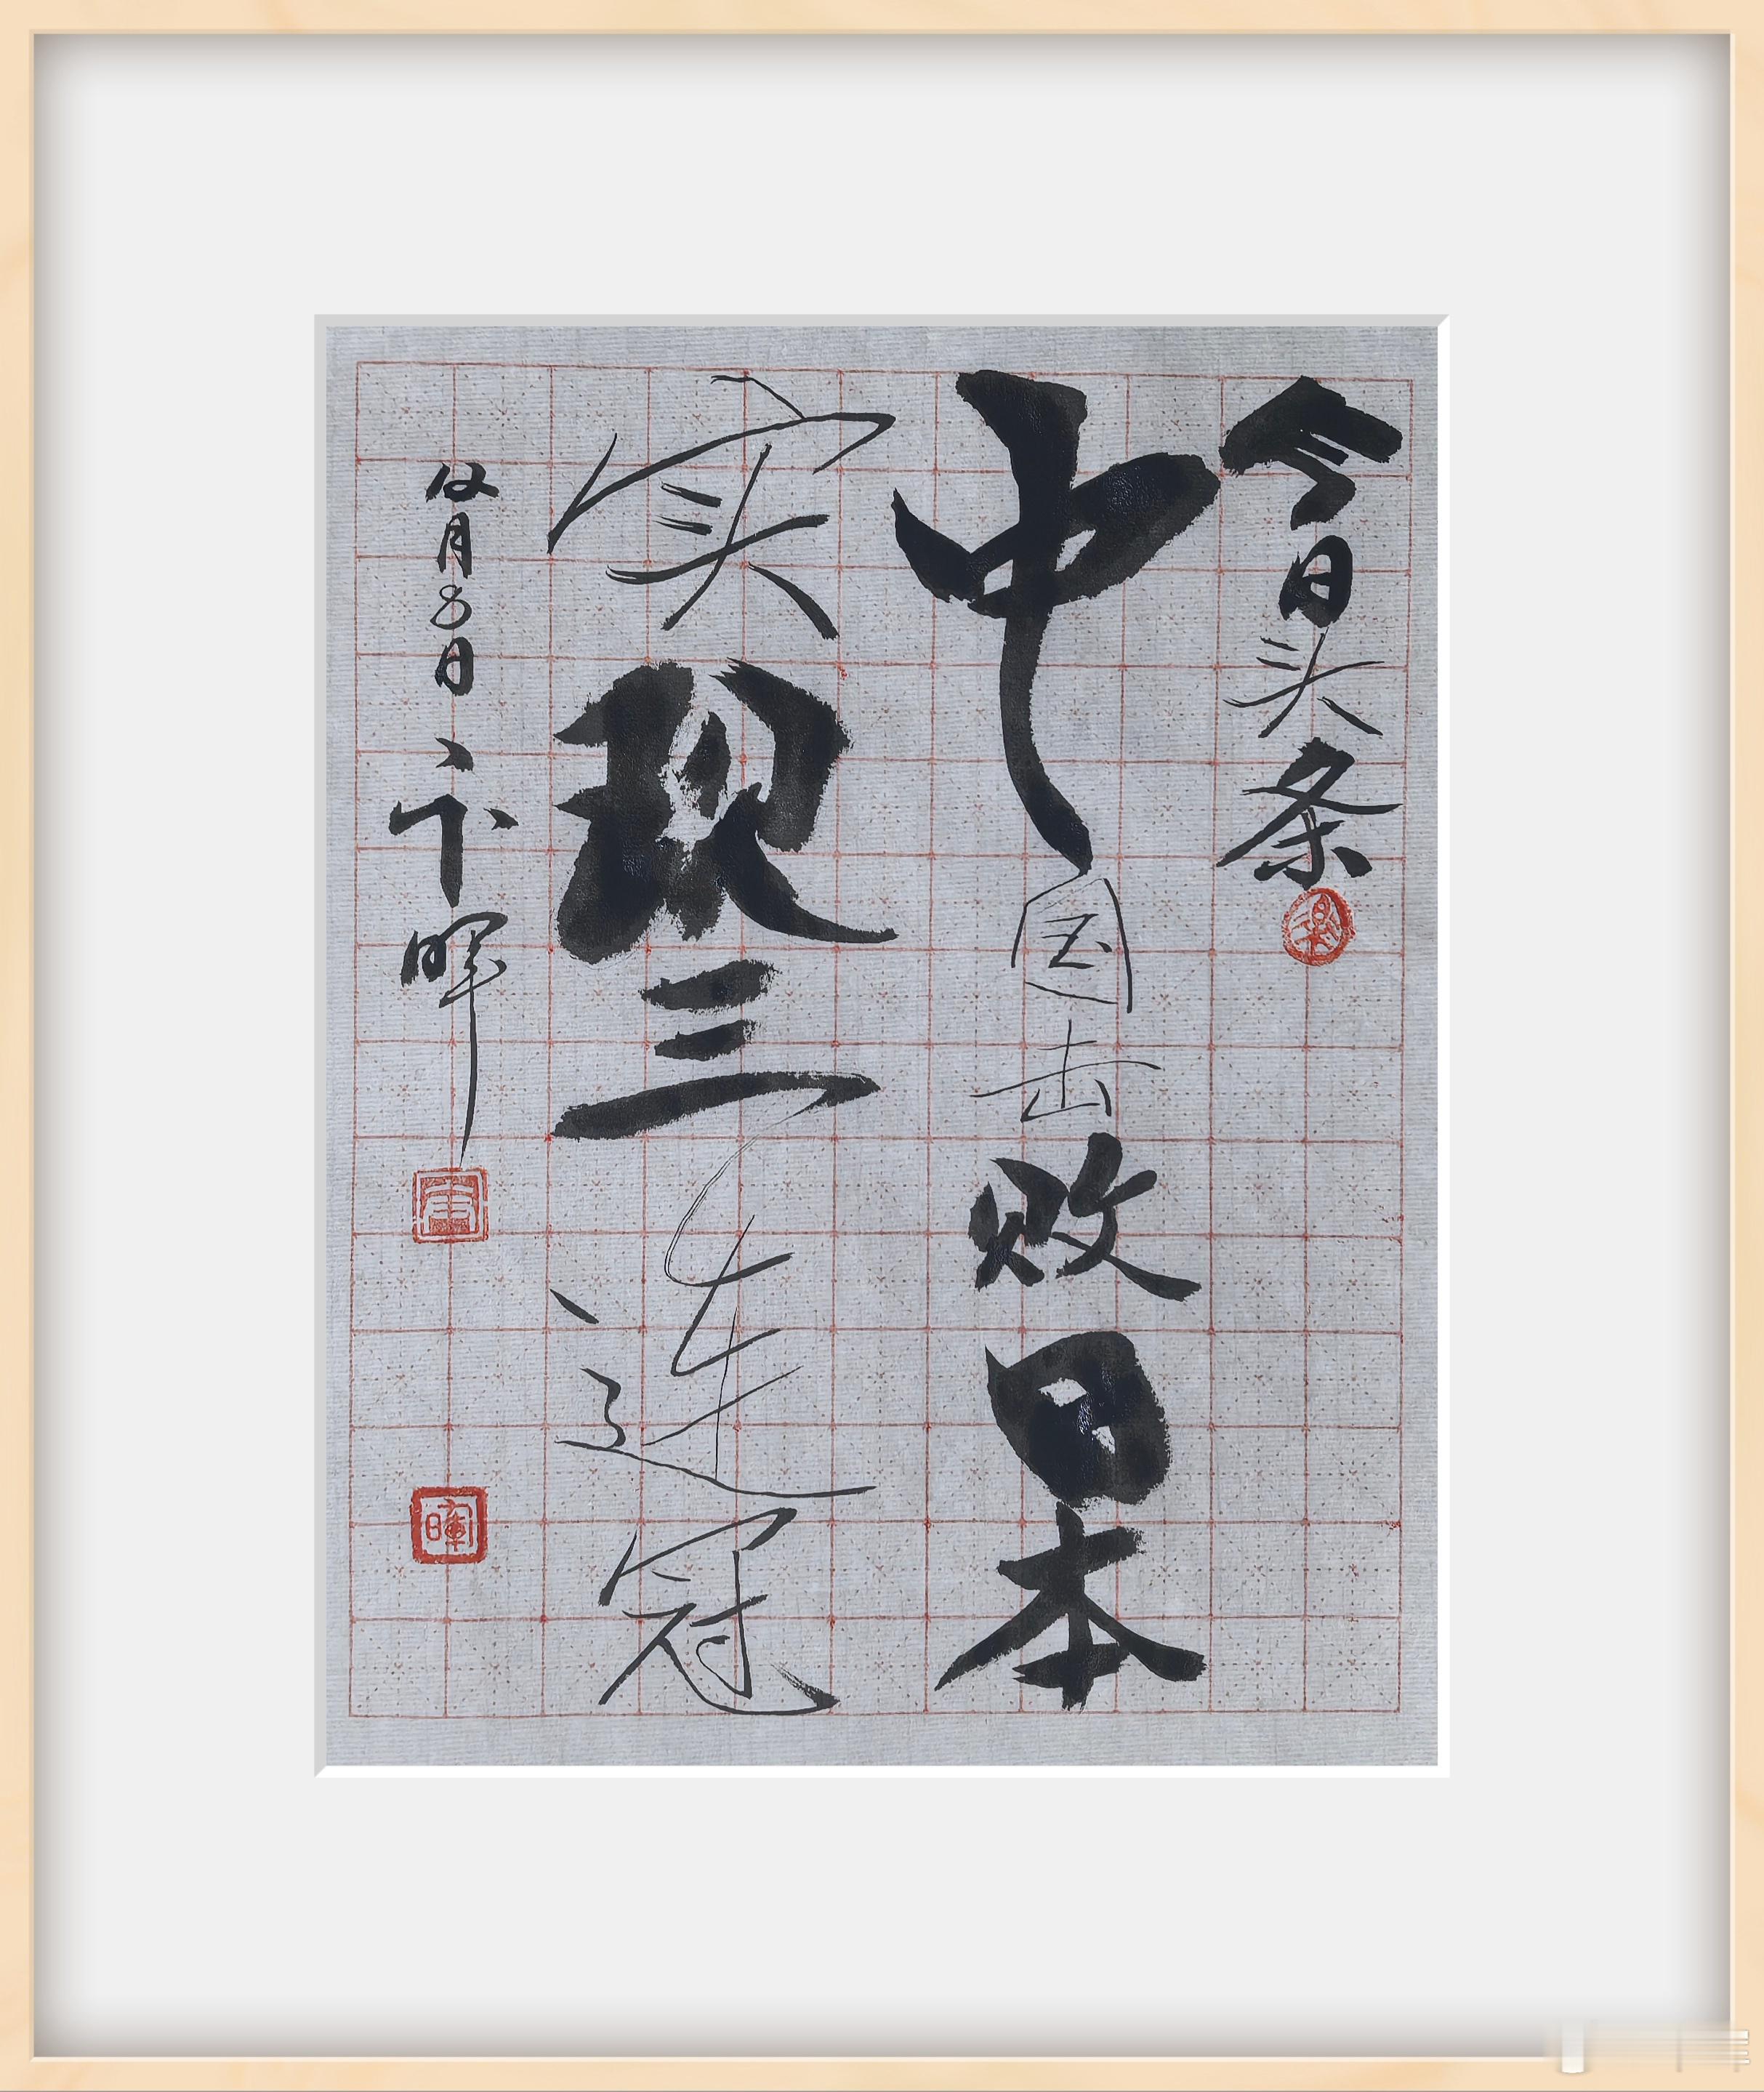 今日头条
中国击败日本
实现三连冠
月日卞晖
暉